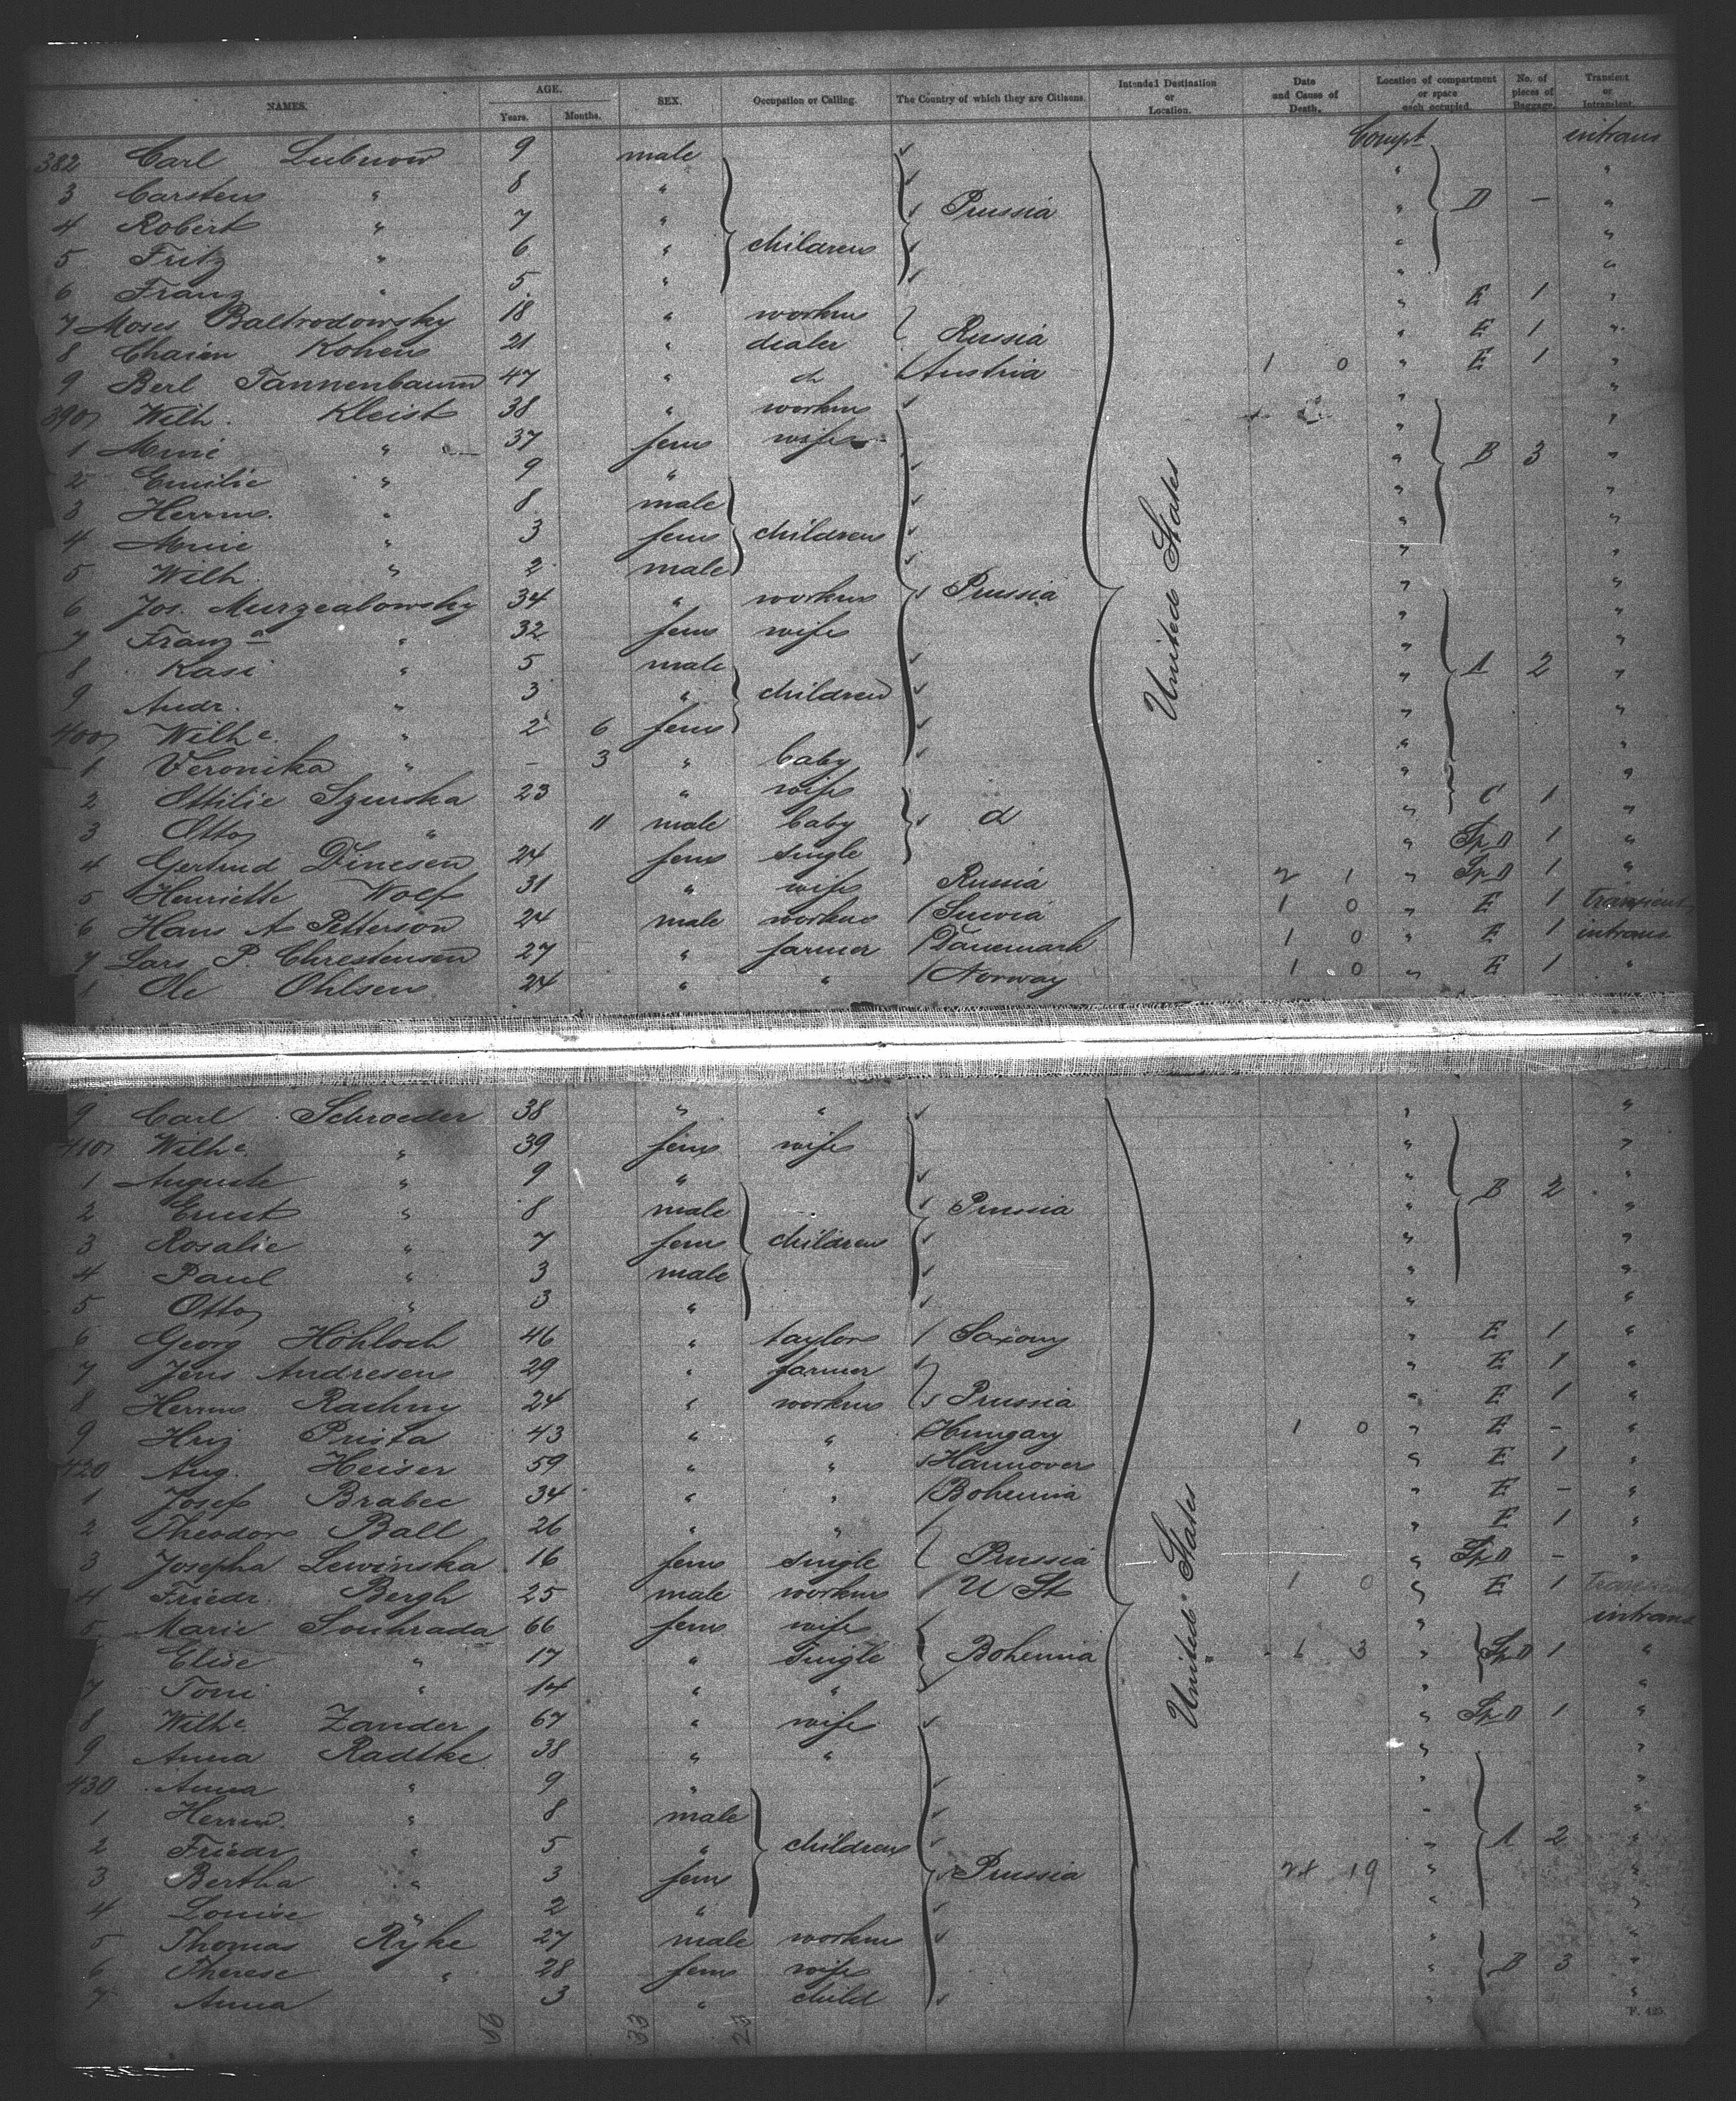 NAMES. AGE. Years. Months. SEX. Occupation or Calling. The Country of which they are Citizens. Intended Destination or Location. Date and Cause of Death. Location of compartment or space each occupied. No. of pieces of Baggage. Transient or Intransient.
382 Carl Lubnow 9 male Compt intrans
3 Carsten " 8 "
4 Robert " 7 " Prussia " D - "
5 Fritz " 6 " children " "
6 Franz " 5 " " "
7 Moses Baltrodowsky 18 " workm " E 1 "
8 Chaim Kohen 21 " dealer Russia " E 1 "
9 Berl Tannenbaum 47 " do Austria 1 0 " E 1 "
390 Wilh. Kleist 38 " workm " "
1 Mine " 37 fem wife " "
2 Emilie " 9 " " B 3 "
3 Herrm. " 8 male " "
4 Mine " 3 fem children " "
5 Wilh. " 2 male " "
6 Jos. Murzealowsky 34 " workm Prussia " "
7 Franza " 32 fem wife " "
8 Kasi " 5 male " A 2 "
9 Andr. " 3 " children " "
400 Wilhe. " 2 6 fem " "
1 Veronika " - 3 " baby " "
2 Ottilie Szinska 23 " wife " C 1 "
3 Otto " 11 male baby d " "
4 Gertrud Dinesen 24 fem single " Sp D 1 "
5 Henriette Wolf 31 " wife Russia 2 1 " Sp D 1 "
6 Hans A Petterson 24 male workm Suevia 1 0 " E 1 transient
7 Lars P. Chrestensen 27 " farmer Danemark 1 0 " E 1 intrans
Ole Ohlsen 24 " " Norway 1 0 " E 1 "
United States
9 Carl Schroeder 38 " " " "
410 Wilhe. " 39 fem wife " "
1 Auguste " 9 " " "
2 Ernst " 8 male Prussia " B 2 "
3 Rosalie " 7 fem children " "
4 Paul " 3 male " "
5 Otto " 3 " " "
6 Georg Hohloch 46 " taylor Saxony " E 1 "
7 Jens Andresen 29 " farmer " E 1 "
8 Herrm Rachny 24 " workm Prussia " E 1 "
9 Hrij Prista 43 " " Hungary 1 0 " E - "
420 Aug. Heiser 59 " " Hannover " E 1 "
1 Josef Brabec 34 " " Bohemia " E - "
2 Theodor Ball 26 " " " E 1 "
3 Josepha Lewinska 16 fem single Prussia " Sp D - "
4 Friedr. Bergh 25 male workm U St 1 0 " E 1 transient
5 Marie Souhrada 66 fem wife " intrans
Elise " 17 " Single Bohemia 6 3 " Sp D 1 "
7 Toni " 14 " " " "
8 Wilhe. Zander 67 " wife " Sp D 1 "
9 Anna Radtke 38 " " " "
430 Anna " 9 " " "
1 Herrm. " 8 male " "
2 Friedr " 5 " children " A 2 "
3 Bertha " 3 fem Prussia 24 19 " "
4 Louise " 2 " " "
5 Thomas Ryke 27 male workm " "
6 Therese " 28 fem wife " B 3 "
7 Anna 3 " child " "
United States
56 33 23
F. 425.